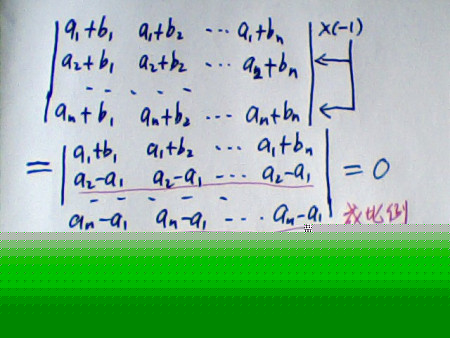 a₁+b₁ a₁+b₂ ··· a₁+bₙ ×(-1)
a₂+b₁ a₂+b₂ ··· a₂+bₙ
- - - - -
aₙ+b₁ aₙ+b₂ ··· aₙ+bₙ
= a₁+b₁ a₁+b₂ ··· a₁+bₙ
a₂-a₁ a₂-a₁ ··· a₂-a₁ = 0
- - - - - -
aₙ-a₁ aₙ-a₁ ··· aₙ-a₁ 成比例